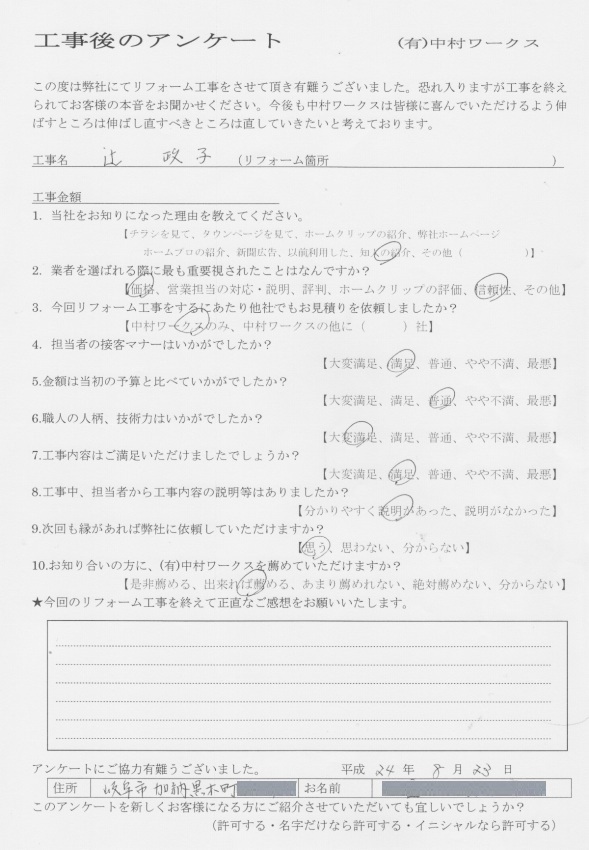 工事後のアンケート (有)中村ワークス
この度は弊社にてリフォーム工事をさせて頂き有難うございました。恐れ入りますが工事を終え
られてお客様の本音をお聞かせください。今後も中村ワークスは皆様に喜んでいただけるよう伸
ばすところは伸ばし直すべきところは直していきたいと考えております。
工事名 辻 政子 (リフォーム箇所 )
工事金額
1. 当社をお知りになった理由を教えてください。
【チラシを見て、タウンページを見て、ホームクリップの紹介、弊社ホームページ
ホームプロの紹介、新聞広告、以前利用した、知人の紹介、その他( )】
2. 業者を選ばれる際に最も重要視されたことはなんですか?
【価格、営業担当の対応・説明、評判、ホームクリップの評価、信頼性、その他】
3. 今回リフォーム工事をするにあたり他社でもお見積りを依頼しましたか?
【中村ワークスのみ、中村ワークスの他に( )社】
4. 担当者の接客マナーはいかがでしたか?
【大変満足、満足、普通、やや不満、最悪】
5.金額は当初の予算と比べていかがでしたか?
【大変満足、満足、普通、やや不満、最悪】
6.職人の人柄、技術力はいかがでしたか?
【大変満足、満足、普通、やや不満、最悪】
7.工事内容はご満足いただけましたでしょうか?
【大変満足、満足、普通、やや不満、最悪】
8.工事中、担当者から工事内容の説明等はありましたか?
【分かりやすく説明があった、説明がなかった】
9.次回も縁があれば弊社に依頼していただけますか?
【思う、思わない、分からない】
10.お知り合いの方に、(有)中村ワークスを薦めていただけますか?
【是非薦める、出来れば薦める、あまり薦めれない、絶対薦めない、分からない】
★今回のリフォーム工事を終えて正直なご感想をお願いいたします。
アンケートにご協力有難うございました。 平成 24 年 8 月 23 日
住所 岐阜市加納黒木町 お名前
このアンケートを新しくお客様になる方にご紹介させていただいても宜しいでしょうか?
(許可する・名字だけなら許可する・イニシャルなら許可する)